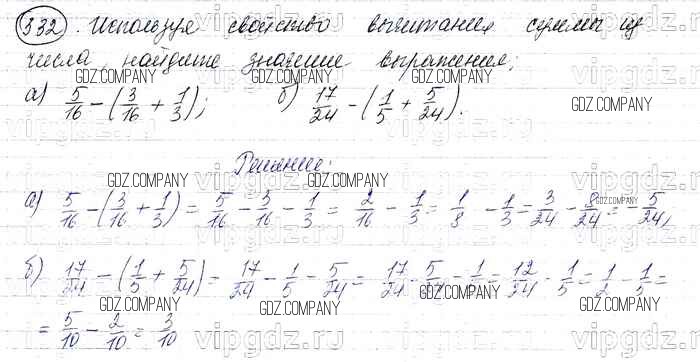 332. Используя свойство вычитания суммы из
числа, найдите значение выражения:
а) 5/16 − (3/16 + 1/3); б) 17/24 − (1/5 + 5/24).
Решение:
а) 5/16 − (3/16 + 1/3) = 5/16 − 3/16 − 1/3 = 2/16 − 1/3 = 1/8 − 1/3 = 3/24 − 8/24 = − 5/24,
б) 17/24 − (1/5 + 5/24) = 17/24 − 1/5 − 5/24 = 17/24 − 5/24 − 1/5 = 12/24 − 1/5 = 1/2 − 1/5 =
= 5/10 − 2/10 = 3/10
GDZ.COMPANY
vipgdz.ru